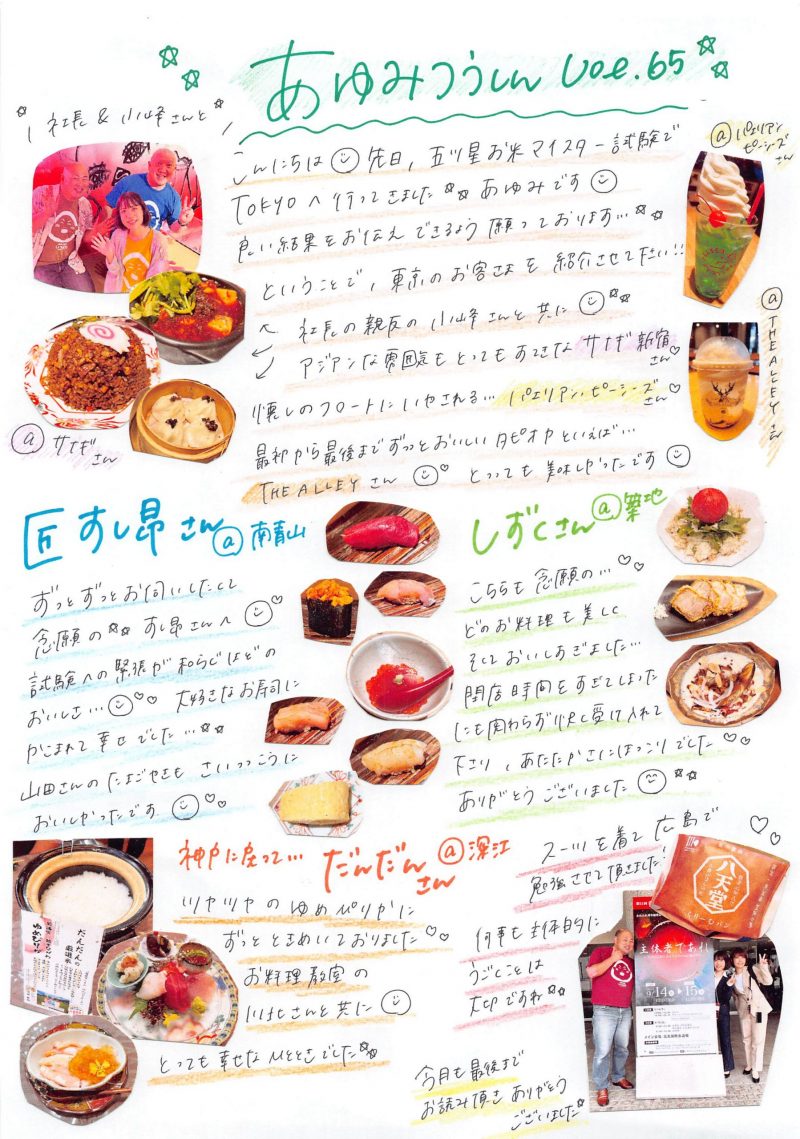 あゆみつうしん Vol.65
社長 & 小峰さんと
こんにちは 先日、五ツ星お米マイスター試験で
TOKYOへ行ってきました あゆみです
良い結果をお伝えできるよう 願っております…
ということで、東京のお客さまを 紹介させて下さい!!
社長の親友の 小峰さんと共に
アジアンな雰囲気も とってもすてきな サナギ 新宿さん
懐しのフロートにいやされる… パエリアン・ピーシーズさん
最初から最後まで ずっとおいしい タピオカ といえば…
THE ALLEY さん とっても 美味しかったです
@パエリアン
ピーシーズ
さん
@THE ALLEY さん
@サナギ
さん
匠 すし昂 さん @南青山
ずっとずっと お伺いしたくて
念願の すし昂さんへ
試験への緊張が 和らぐほどの
おいしさ… 大好きなお寿司に
かこまれて 幸せでした…
山田さんの たまごやきも さいっっこうに
おいしかったです
しずくさん @築地
こちらも 念願の…
どのお料理も 美しく
そして おいしすぎました…
閉店時間をすぎてしまった
にも関わらず 快く受け入れて
下さり、あたたかさに ほっこりでした
ありがとう ございました
神戸に戻って… だんだんさん @深江
ツヤツヤの ゆめぴりかに
ずっと ときめいておりました
お料理教室の
川北さんと共に
とっても 幸せな ひとときでした
だんだんの
厳選米
ゆめぴりか
スーツを着て 広島で
勉強させて頂きました!
何事も 主体的に
うごくことは
大切ですね
八天堂
くりーむパン
主体者であれ
9/14 15
今月も 最後まで
お読み頂き ありがとう
ございました